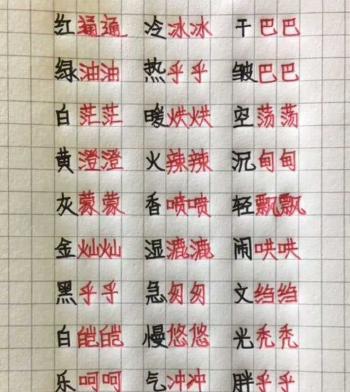 红通通 冷冰冰 干巴巴
绿油油 热乎乎 皱巴巴
白茫茫 暖烘烘 空荡荡
黄澄澄 火辣辣 沉甸甸
灰蒙蒙 香喷喷 轻飘飘
金灿灿 湿漉漉 闹哄哄
黑乎乎 急匆匆 文绉绉
白皑皑 慢悠悠 光秃秃
乐呵呵 气冲冲 胖乎乎